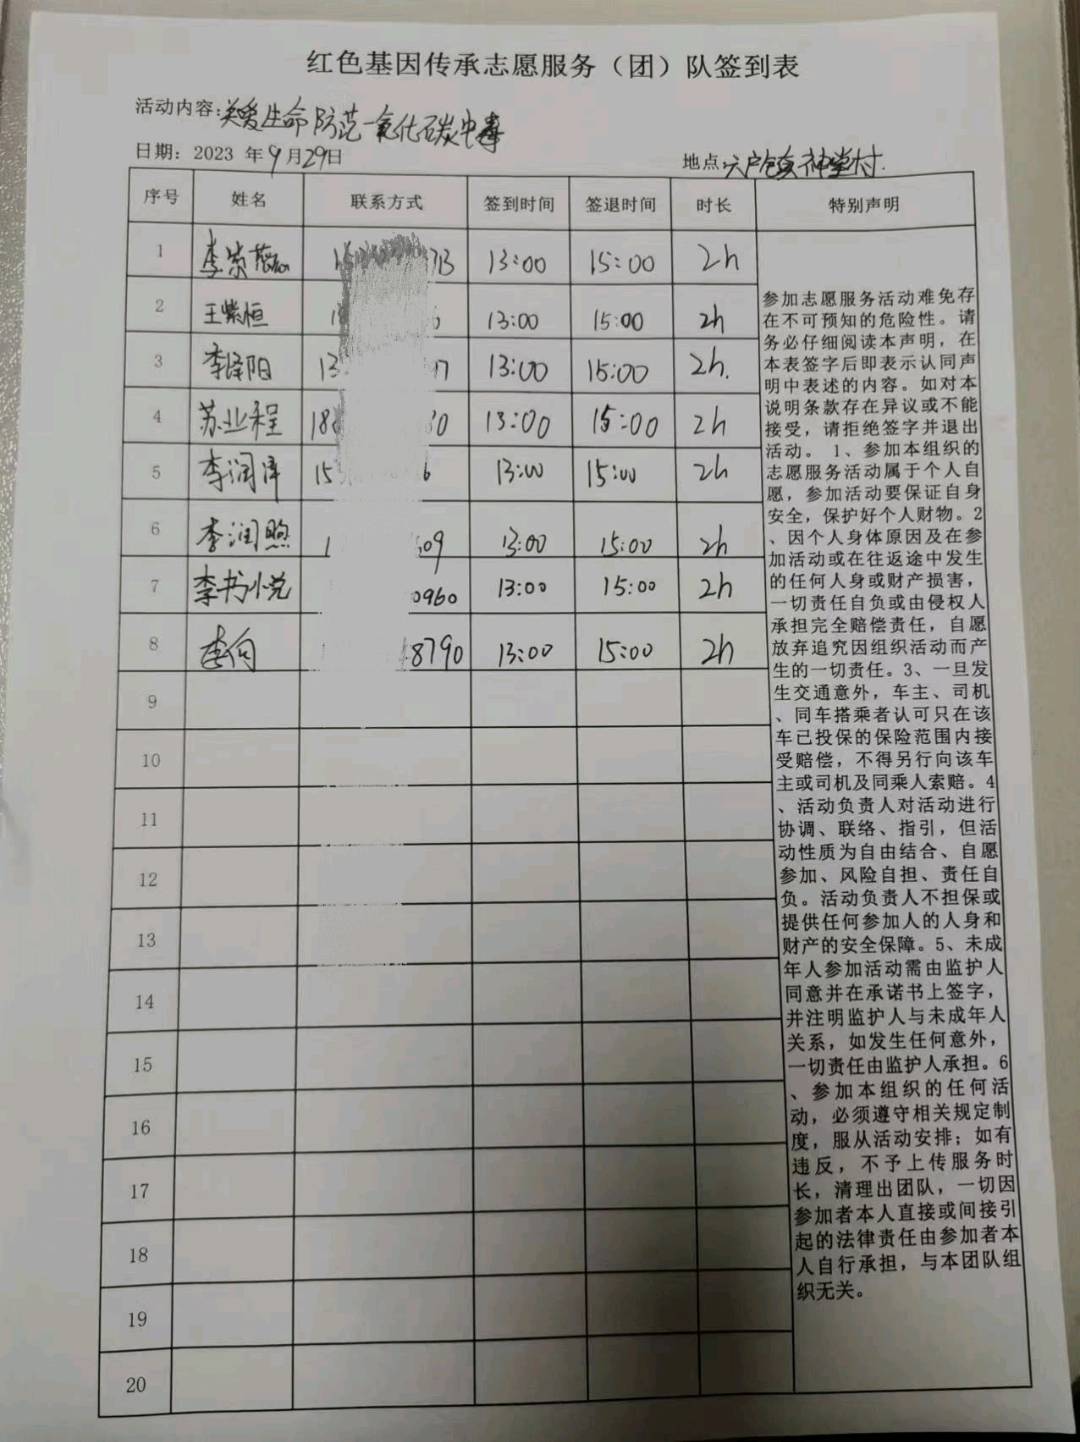 红色基因传承志愿服务（团）队签到表
活动内容:关爱生命防范一氧化碳中毒
日期: 2023 年9月29日 地点:六户镇神堂村.
序号 姓名 联系方式 签到时间 签退时间 时长 特别声明
1 李紫 713 13:00 15:00 2h
2 王紫恒 13:00 15:00 2h
3 李泽阳 13 13:00 15:00 2h.
4 苏业程 188 30 13:00 15:00 2h
5 李润泽 15 6 13:00 15:00 2h
6 李润煦 1 09 13:00 15:00 2h
7 李书悦 0960 13:00 15:00 2h
8 李向 8790 13:00 15:00 2h
9
10
11
12
13
14
15
16
17
18
19
20
参加志愿服务活动难免存
在不可预知的危险性。请
务必仔细阅读本声明，在
本表签字后即表示认同声
明中表述的内容。如对本
说明条款存在异议或不能
接受，请拒绝签字并退出
活动。 1、参加本组织的
志愿服务活动属于个人自
愿，参加活动要保证自身
安全，保护好个人财物。2
、因个人身体原因及在参
加活动或在往返途中发生
的任何人身或财产损害，
一切责任自负或由侵权人
承担完全赔偿责任，自愿
放弃追究因组织活动而产
生的一切责任。3、一旦发
生交通意外，车主、司机
、同车搭乘者认可只在该
车已投保的保险范围内接
受赔偿，不得另行向该车
主或司机及同乘人索赔。4
、活动负责人对活动进行
协调、联络、指引，但活
动性质为自由结合、自愿
参加、风险自担、责任自
负。活动负责人不担保或
提供任何参加人的人身和
财产的安全保障。5、未成
年人参加活动需由监护人
同意并在承诺书上签字，
并注明监护人与未成年人
关系，如发生任何意外，
一切责任由监护人承担。6
、参加本组织的任何活
动，必须遵守相关规定制
度，服从活动安排；如有
违反，不予上传服务时
长，清理出团队，一切因
参加者本人直接或间接引
起的法律责任由参加者本
人自行承担，与本团队组
织无关。